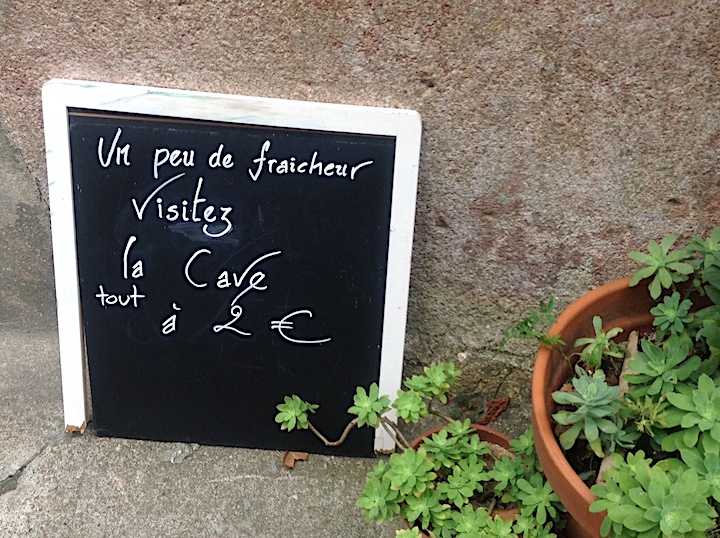 Un peu de fraicheur
Visitez
la Cave
tout à 2 €